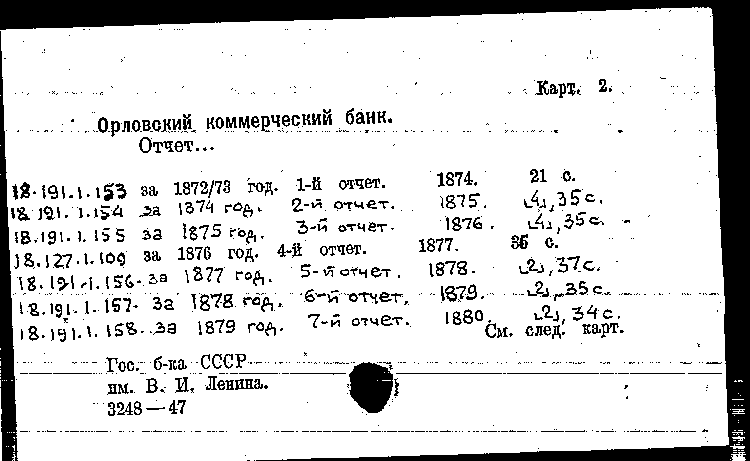 Карт. 2.
Орловский коммерческий банк.
Отчет...
18.191.1.153 за 1872/73 год. 1-й отчет. 1874. 21 с.
18.191.1.154 за 1874 год. 2-й отчет. 1875. [4], 35 с.
18.191.1.155 за 1875 год. 3-й отчет. 1876. [4], 35 с.
18.127.1.109 за 1876 год. 4-й отчет. 1877. 35 с.
18.191.1.156. за 1877 год. 5-й отчет. 1878. [2], 37 с.
18.191.1.157. за 1878 год. 6-й отчет. 1879. [2], 35 с.
18.191.1.158. за 1879 год. 7-й отчет. 1880. [2], 34 с.
См. след. карт.
Гос. б-ка СССР
им. В. И. Ленина.
3248—47